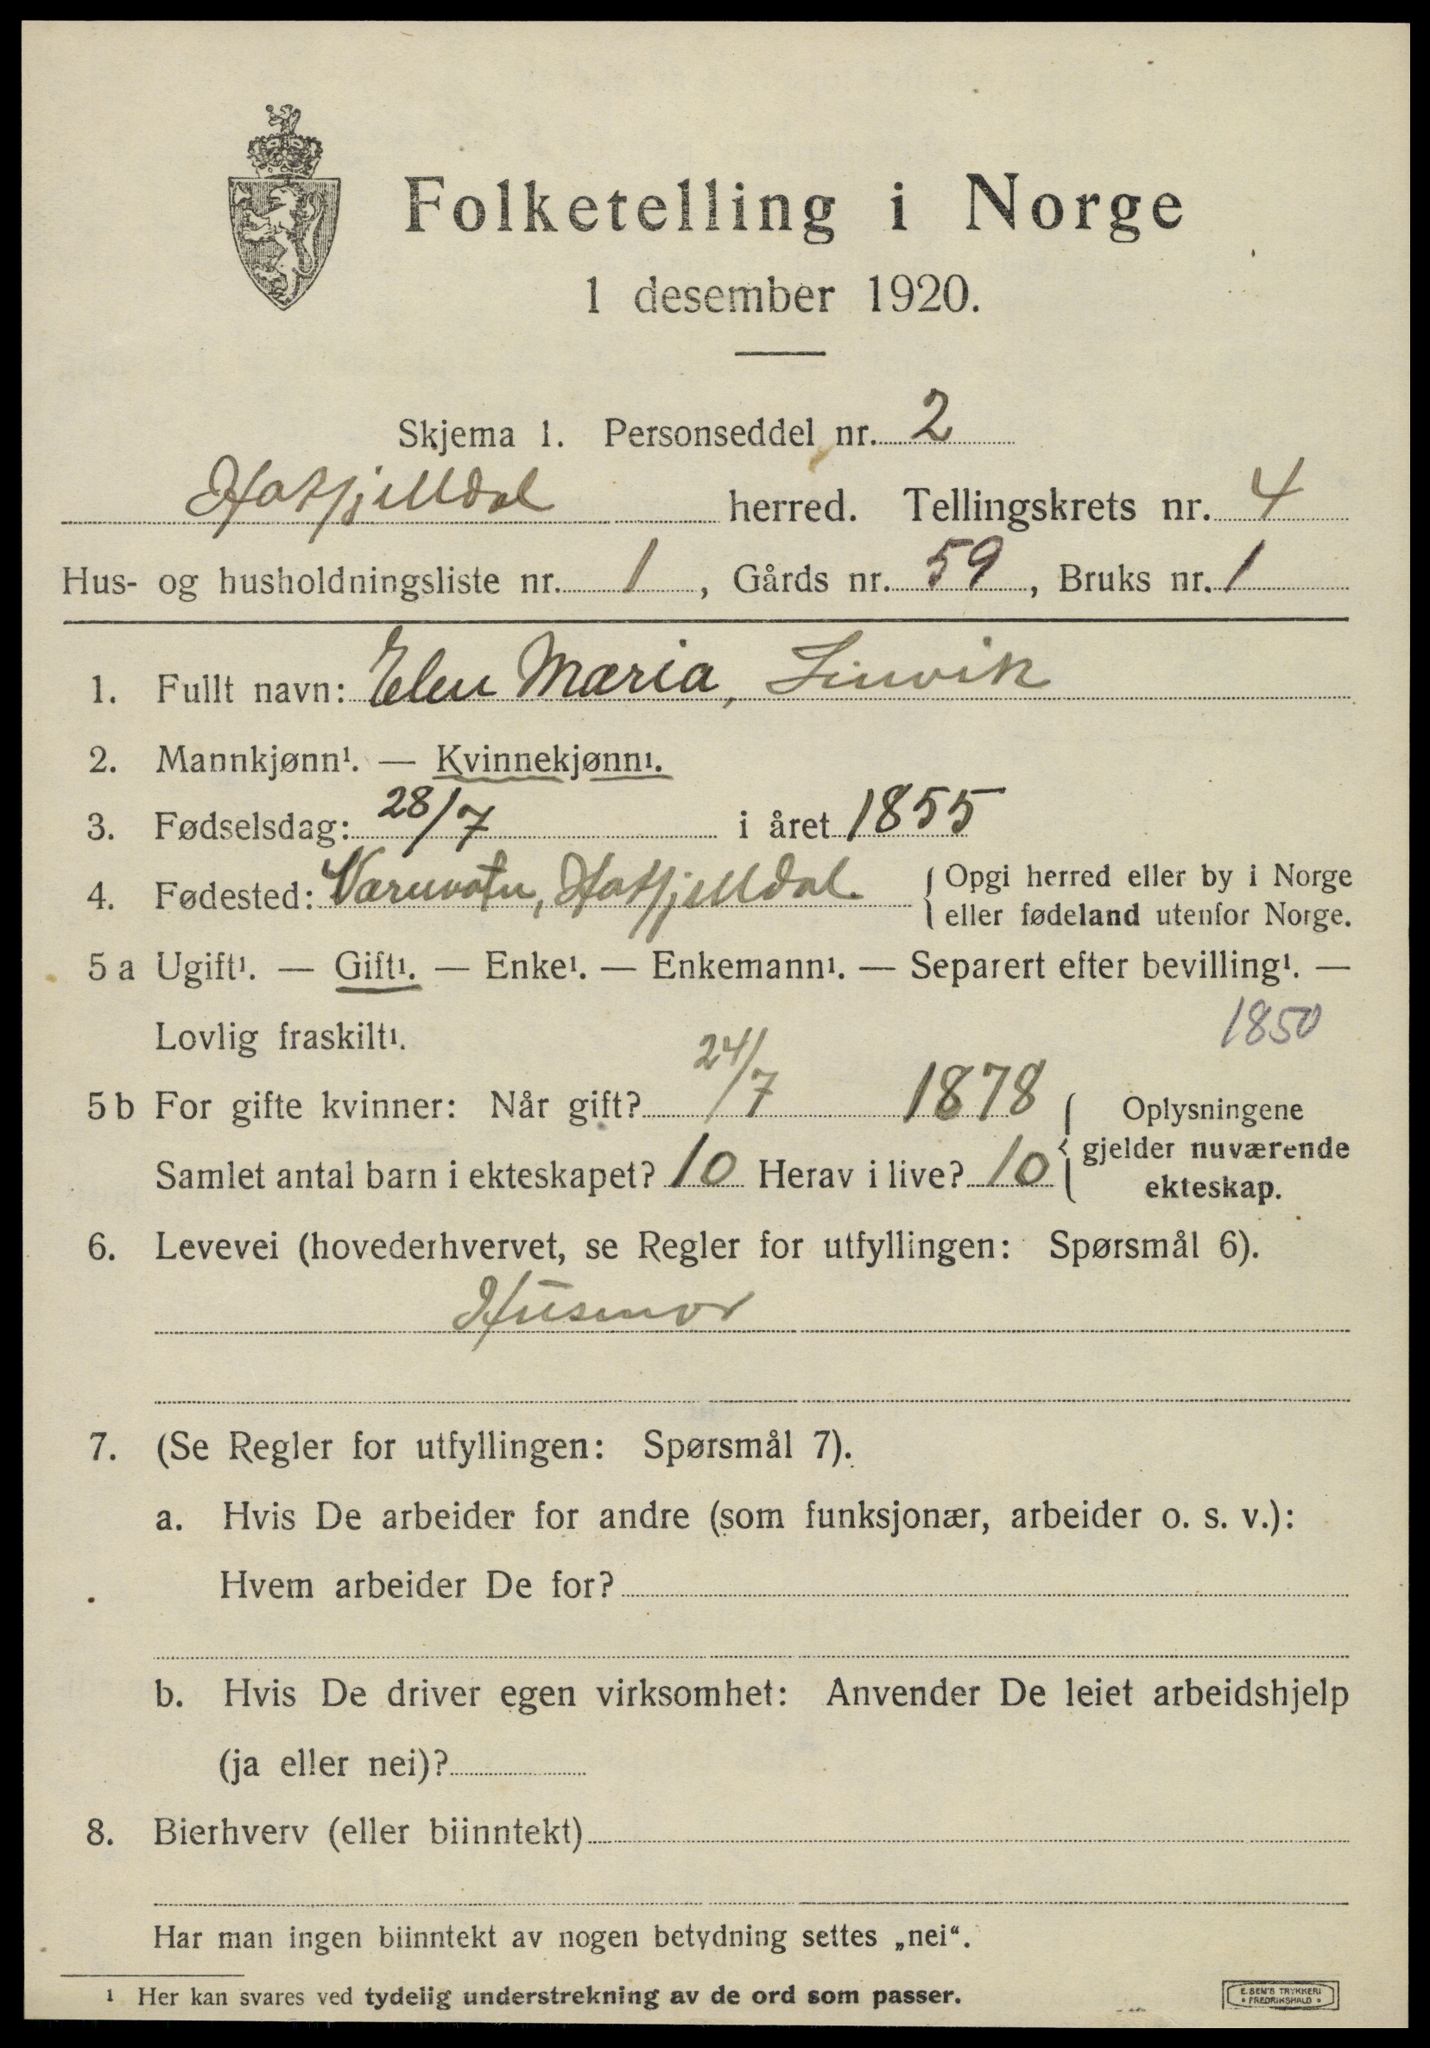 Folketelling i Norge
1 desember 1920.
Skjema 1. Personseddel nr. 2
Hatfjelldal herred. Tellingskrets nr. 4
Hus- og husholdningsliste nr. 1, Gårds nr. 59, Bruks nr. 1
1. Fullt navn: Elen Maria, Linvik
2. Mannkjønn¹. — Kvinnekjønn¹.
3. Fødselsdag: 28/7 i året 1855
4. Fødested: Varnvatn, Hatfjelldal { Opgi herred eller by i Norge
eller fødeland utenfor Norge.
5 a Ugift¹. — Gift¹. — Enke¹. — Enkemann¹. — Separert efter bevilling¹. —
Lovlig fraskilt¹. 1850
5 b For gifte kvinner: Når gift? 24/7 1878 { Oplysningene
gjelder nuværende
Samlet antal barn i ekteskapet? 10 Herav i live? 10
ekteskap.
6. Levevei (hovederhvervet, se Regler for utfyllingen: Spørsmål 6).
Husmor
7. (Se Regler for utfyllingen: Spørsmål 7).
a. Hvis De arbeider for andre (som funksjonær, arbeider o. s. v.):
Hvem arbeider De for?
b. Hvis De driver egen virksomhet: Anvender De leiet arbeidshjelp
(ja eller nei)?
8. Bierhverv (eller biinntekt)
Har man ingen biinntekt av nogen betydning settes „nei“.
¹ Her kan svares ved tydelig understrekning av de ord som passer.
E. SEM'S TRYKKERI
• FREDRIKSHALD •